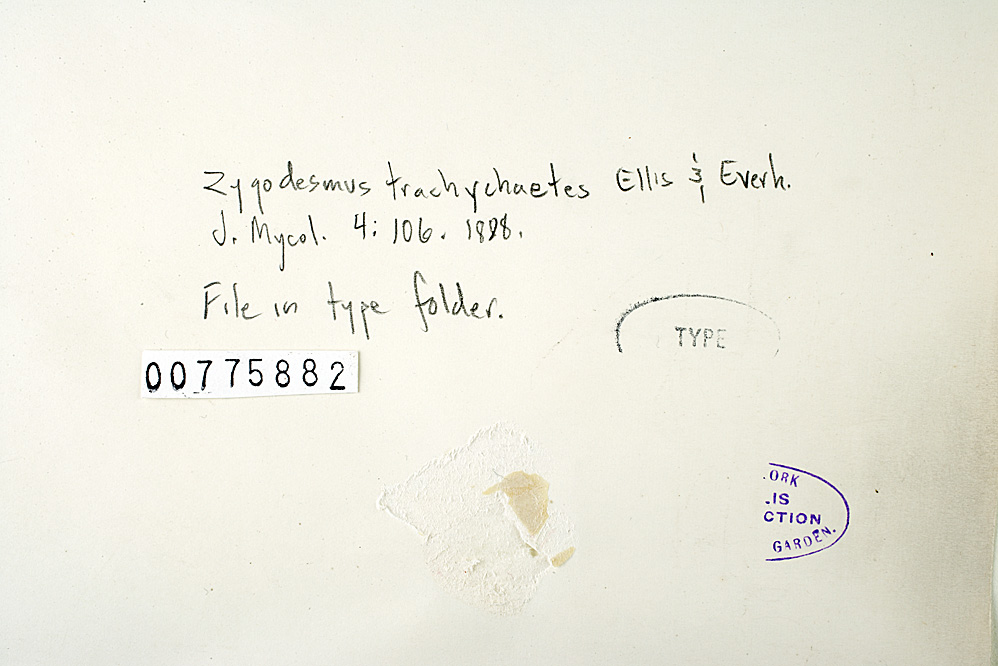 Zygodesmus trachychaetes Ellis & Everh.
J. Mycol. 4: 106. 1888.
File in type folder.
TYPE
00775882
.ORK
.IS
CTION
GARDEN.